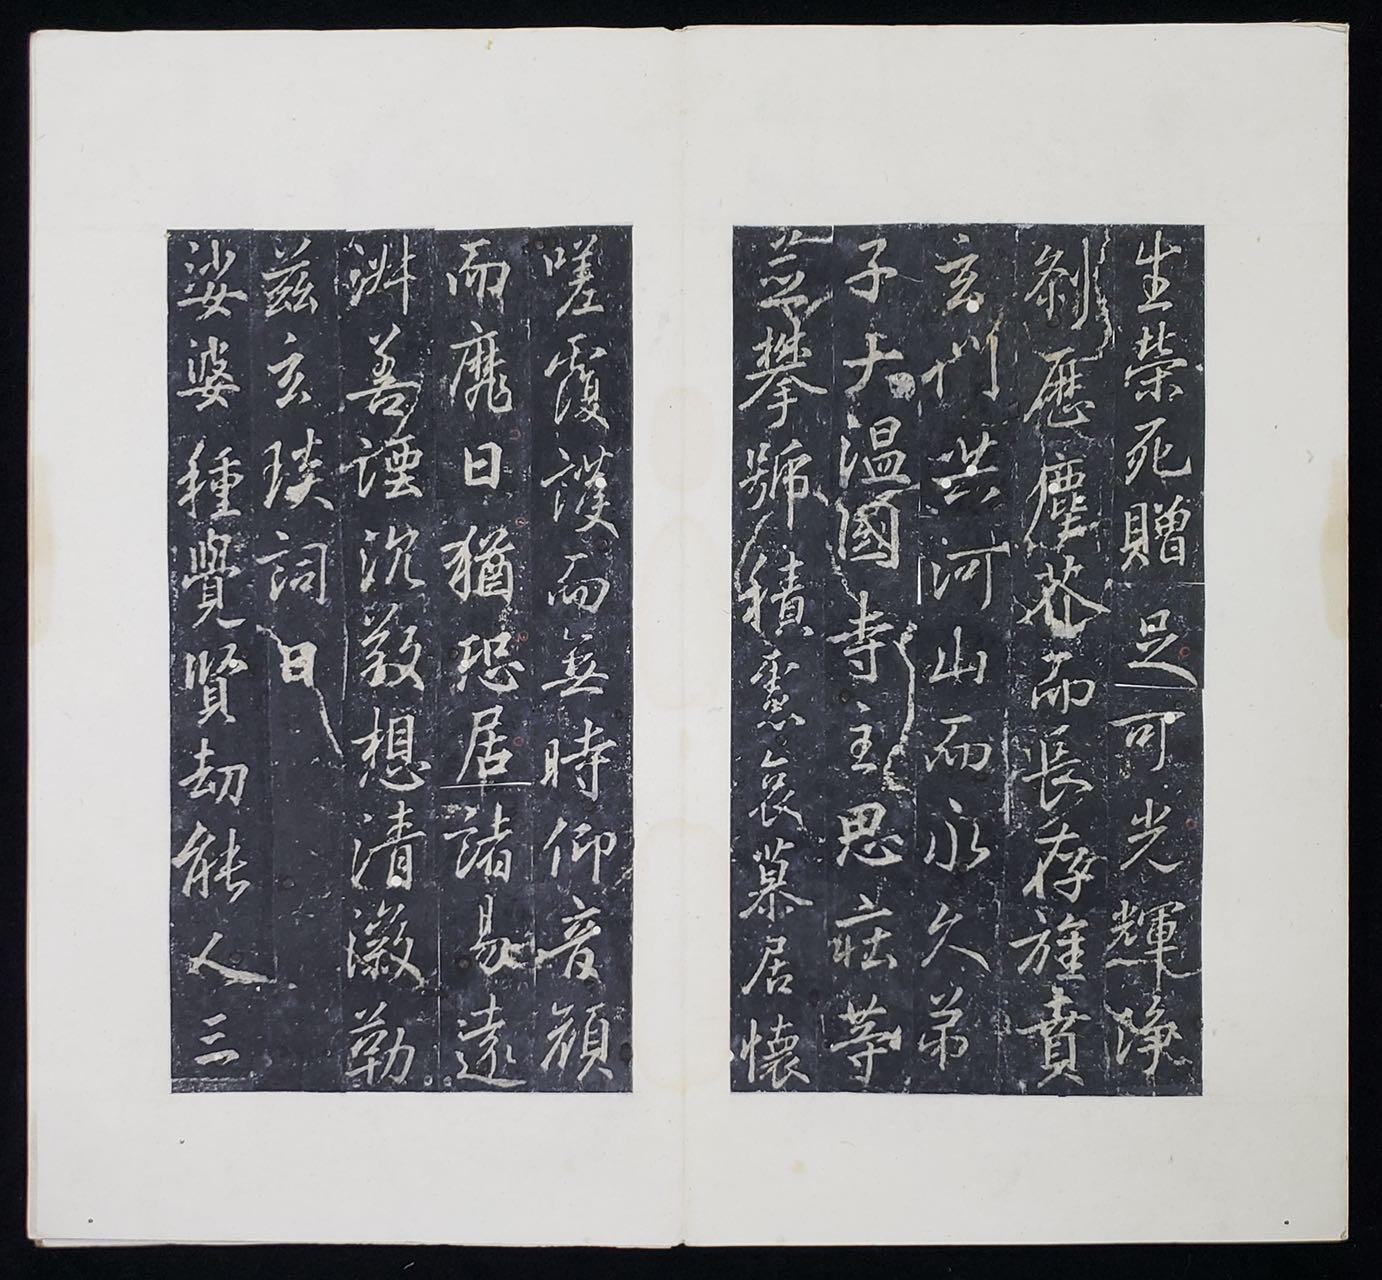 生荣死贈足可光輝净
剎歷塵芥而長存雄賁
玄刊共河山而永久弟
子大温國寺主思莊等
並攀號積慕哀慕居懷
嗟覆護而無時仰音顔
而靡日猶恐居諸易遠
淋善湮沉敬想清徽勒
兹玄琰詞曰
娑婆種覺賢劫能人三